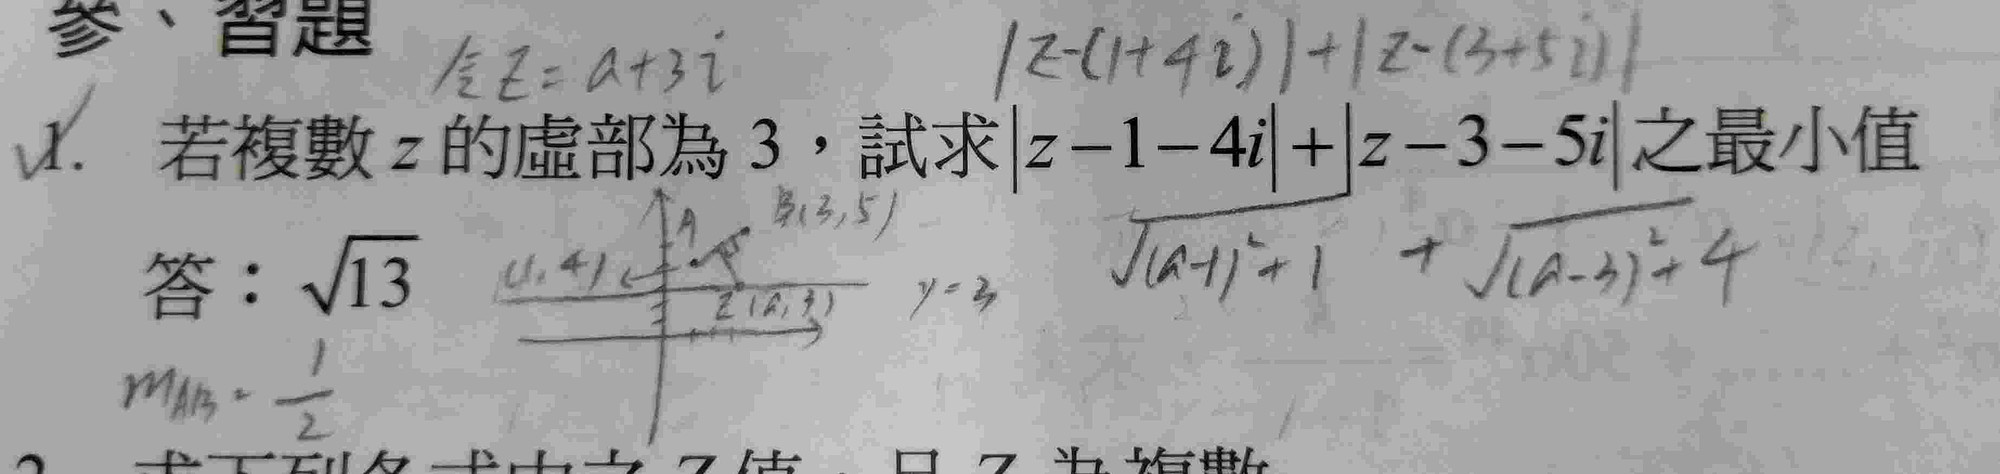 參、習題
令z=a+3i |z-(1+4i)|+|z-(3+5i)|
1. 若複數 z 的虛部為 3，試求|z−1−4i|+|z−3−5i|之最小值
A B(3,5)
答：√13 (1,4) z(a,3) y=3 √(a-1)²+1 + √(a-3)²+4
m_AB = 1/2
2. 求下列各式中之 Z 值，且 Z 為複數